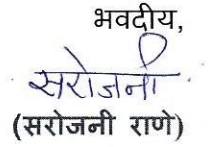 भवदीय,
सरोजनी
(सरोजनी राणे)